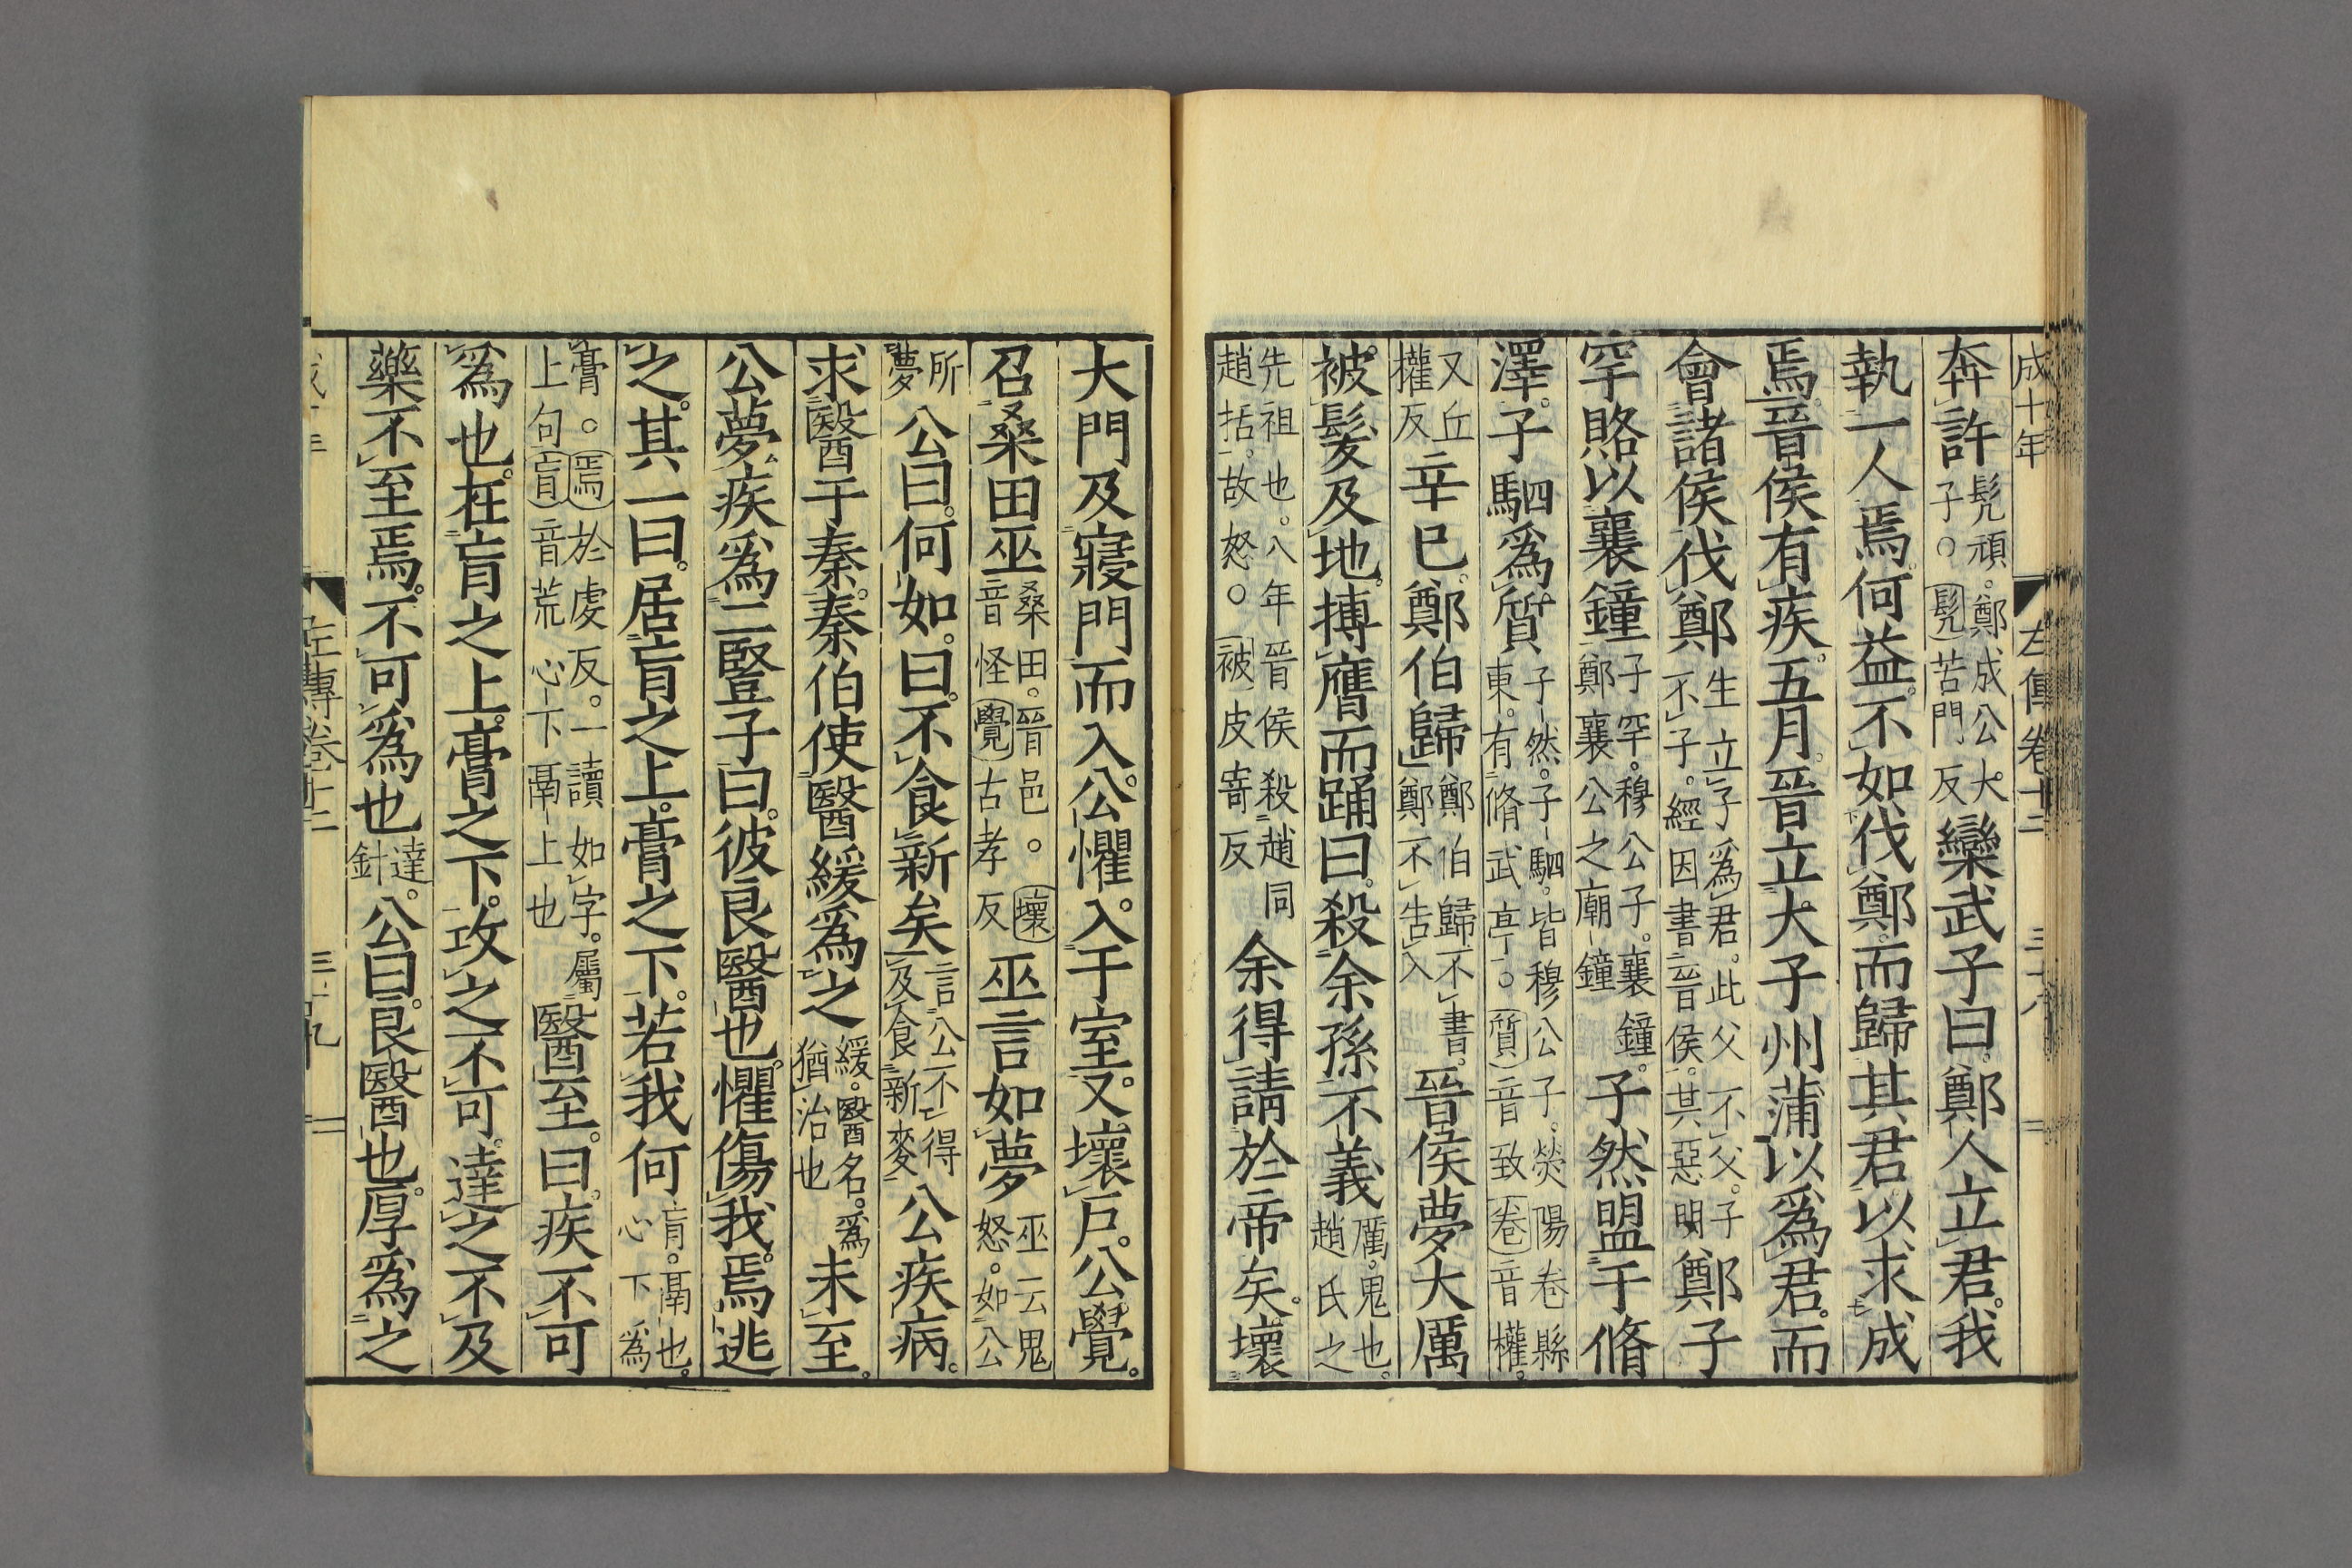 成十年 左傳卷十二
奔許髡頑鄭成公大子○髡苦門反欒武子曰鄭人立君我
執一人焉何益不如伐鄭而歸其君以求成
焉晉侯有疾五月晉立大子州蒲以爲君而
會諸侯伐鄭生立子爲君此父不父子不子經因書晉侯其惡明鄭子
罕賂以襄鐘子罕穆公子襄鐘鄭襄公之廟鐘子然盟于脩
澤子駟爲質子然子駟皆穆公子熒陽卷縣東有脩武亭○質音致卷音權
又丘權反辛巳鄭伯歸鄭伯歸不書鄭不告入晉侯夢大厲
被髮及地搏膺而踊曰殺余孫不義厲鬼也趙氏之
先祖也八年晉侯殺趙同趙括故怒○被皮寄反余得請於帝矣壞
大門及寢門而入公懼入于室又壞戶公覺
召桑田巫桑田晉邑○壞音怪覺古孝反巫言如夢巫云鬼怒如公
所夢公曰何如曰不食新矣言公不得及食新麥公疾病
求醫于秦秦伯使醫緩爲之緩醫名爲猶治也未至
公夢疾爲二豎子曰彼良醫也懼傷我焉逃
之其一曰居肓之上膏之下若我何肓鬲也心下爲
膏○焉於虔反一讀如字屬上句肓音荒心下鬲上也醫至曰疾不可
爲也在肓之上膏之下攻之不可達之不及
藥不至焉不可爲也達針公曰良醫也厚爲之
左傳卷十二 三十九